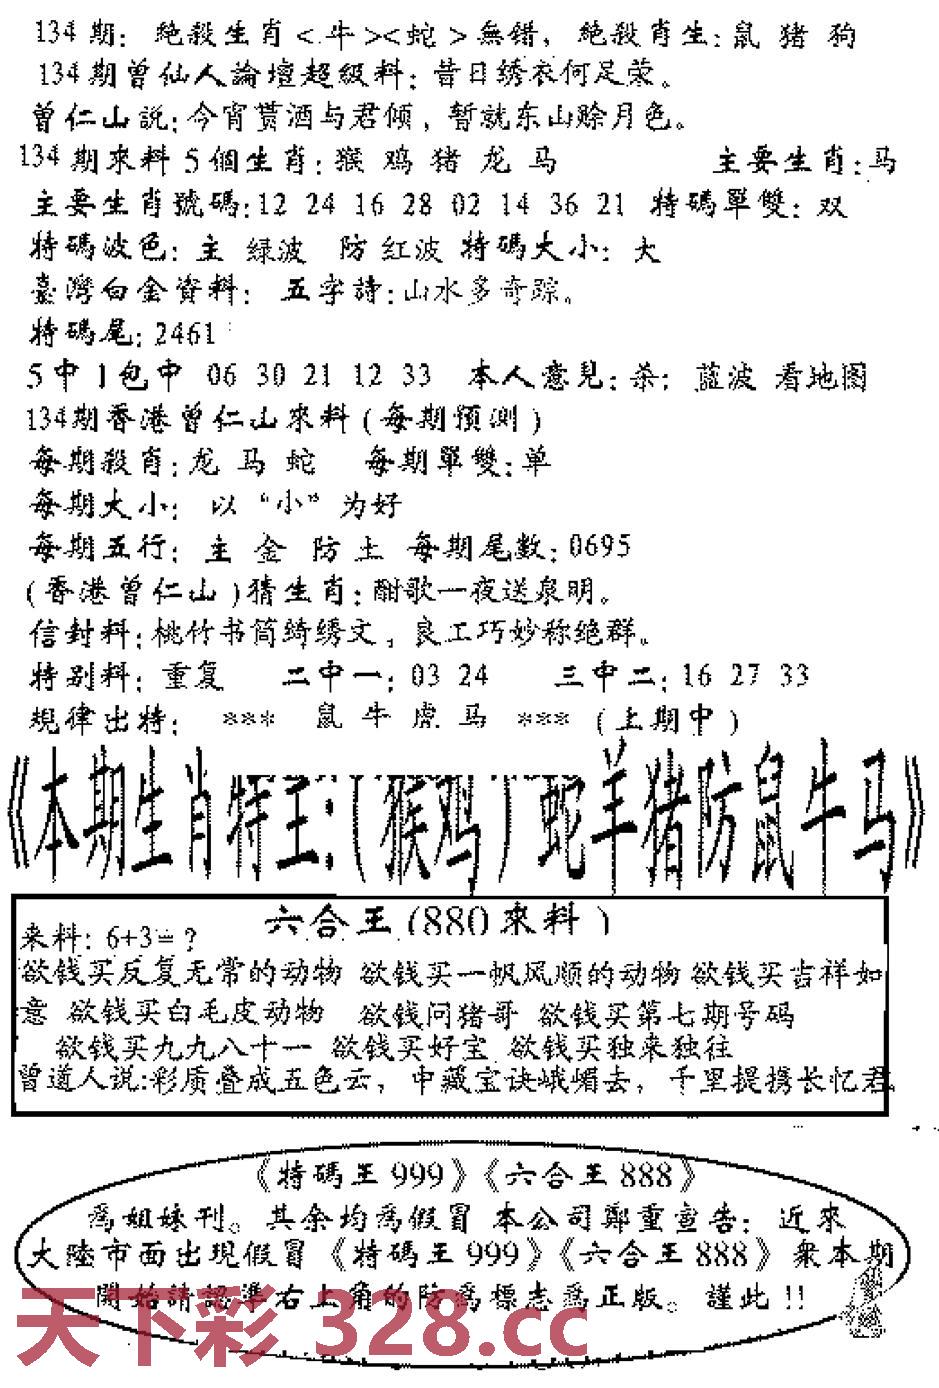 134期: 絶殺生肖<牛><蛇>無錯, 絶殺肖生:鼠 猪 狗
134期曾仙人論壇超級料:昔日绣衣何足荣。
曾仁山説:今宵贳酒与君倾, 暂就东山赊月色。
134期來料5個生肖:猴 鸡 猪 龙 马 主要生肖:马
主要生肖號碼:12 24 16 28 02 14 36 21 特碼單雙: 双
特碼波色: 主 绿波 防 红波 特碼大小: 大
臺灣白金資料: 五字詩:山水多奇踪。
特碼尾:2461
5中1包中 06 30 21 12 33 本人意見:恭: 蓝波 看地图
134期香港曾仁山來料(每期預測)
每期殺肖:龙 马 蛇 每期單雙:单
每期大小: 以“小”为好
每期五行: 主 金 防 土 每期尾数:0695
(香港曾仁山)猜生肖:酣歌一夜送泉明。
信封料:桃竹书简绮绣文, 良工巧妙称绝群。
特别料: 重复 二中一: 03 24 三中二:16 27 33
規律出特: *** 鼠 牛 虎 马 *** (上期中)
《本期生肖特王:(猴鸡)蛇羊猪防鼠牛马》
六合王(880來料)
来料: 6+3=?
欲钱买反复无常的动物 欲钱买一帆风顺的动物 欲钱买吉祥如
意 欲钱买白毛皮动物 欲钱问猪哥 欲钱买第七期号码
欲钱买九九八十一 欲钱买好宝 欲钱买独来独往
曾道人说:彩质叠成五色云, 中藏宝诀峨嵋去, 千里提携长忆君
《特碼王999》《六合王888》
爲姐妹刊。其余均爲假冒 本公司鄭重宣告: 近來
大陸市面出現假冒《特碼王999》《六合王888》衆本期
開始請認準右上角的防爲標志爲正版。謹此!!
天下彩 328.cc